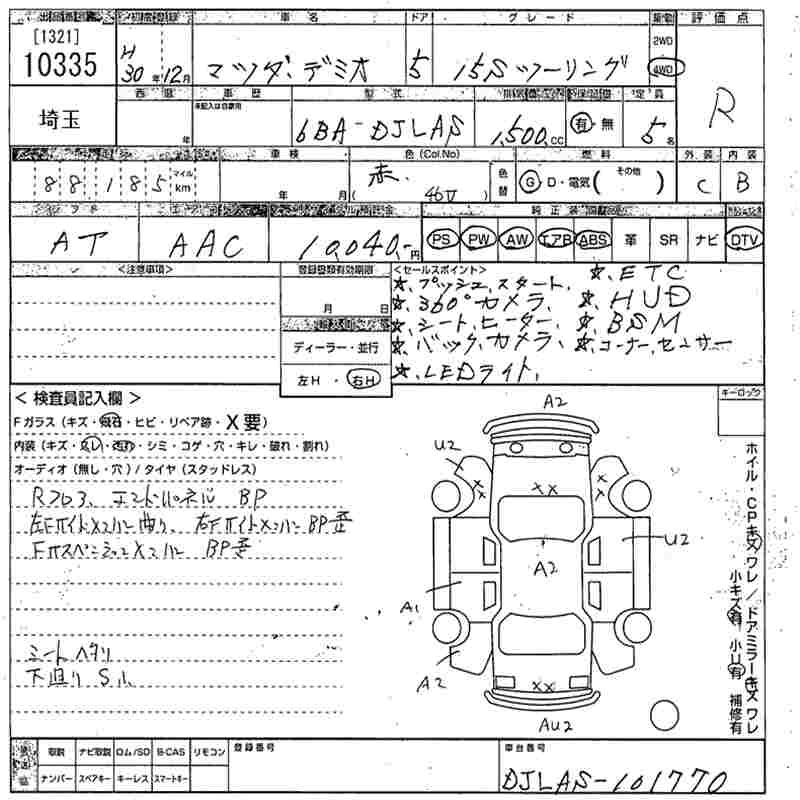 車名 ドア グレード 駆動 評価点
[1321]
10335
H 30年 12月 マツダ・デミオ 5 15Sツーリング 2WD 4WD R
埼玉
車歴 型式 定員
年 未記入は自家用 6BA-DJLAS 1,500.cc 有・無 5名
車検 色(Col.No) 燃料 外装 内装
88185 マイル km 年 月 赤. ( 46V ) 色替 G・D・電気( その他 ) C B
AT AAC 10,040.-円 PS PW AW エアB ABS 革 SR ナビ DTV
<注意事項> 登録書類有効期限 <セールスポイント>
月 日
ディーラー・並行
左H・右H
☆.プッシュ.スタート. ☆.ETC
☆.360°カメラ. ☆.HUD
☆.シート.ヒーター. ☆.BSM
☆.バック.カメラ. ☆.コーナー.センサー
☆.LEDライト.
<検査員記入欄> キーロック
Fガラス(キズ・飛石・ヒビ・リペア跡・X要)
内装(キズ・スレ・汚れ・シミ・コゲ・穴・キレ・破れ・割れ)
オーディオ(無し・穴)/タイヤ(スタッドレス)
Rフロア、エンドパネル BP
左Fサイドメンバー曲り、右FサイドメンバーBP歪
Fサスペンションメンバー BP歪
シートヘタリ
下廻りSル
A2
U2
XX
XX
XX
A2
U2
A1
A2
XX
AU2
ホイル・CPキズワレ/ドアミラーキズワレ
小キズ有 小U有 補修有
取説 ナビ取説 ロム/SD B-CAS リモコン 登録番号 車台番号
ナンバー スペアキー キーレス スマートキー
DJLAS-101770